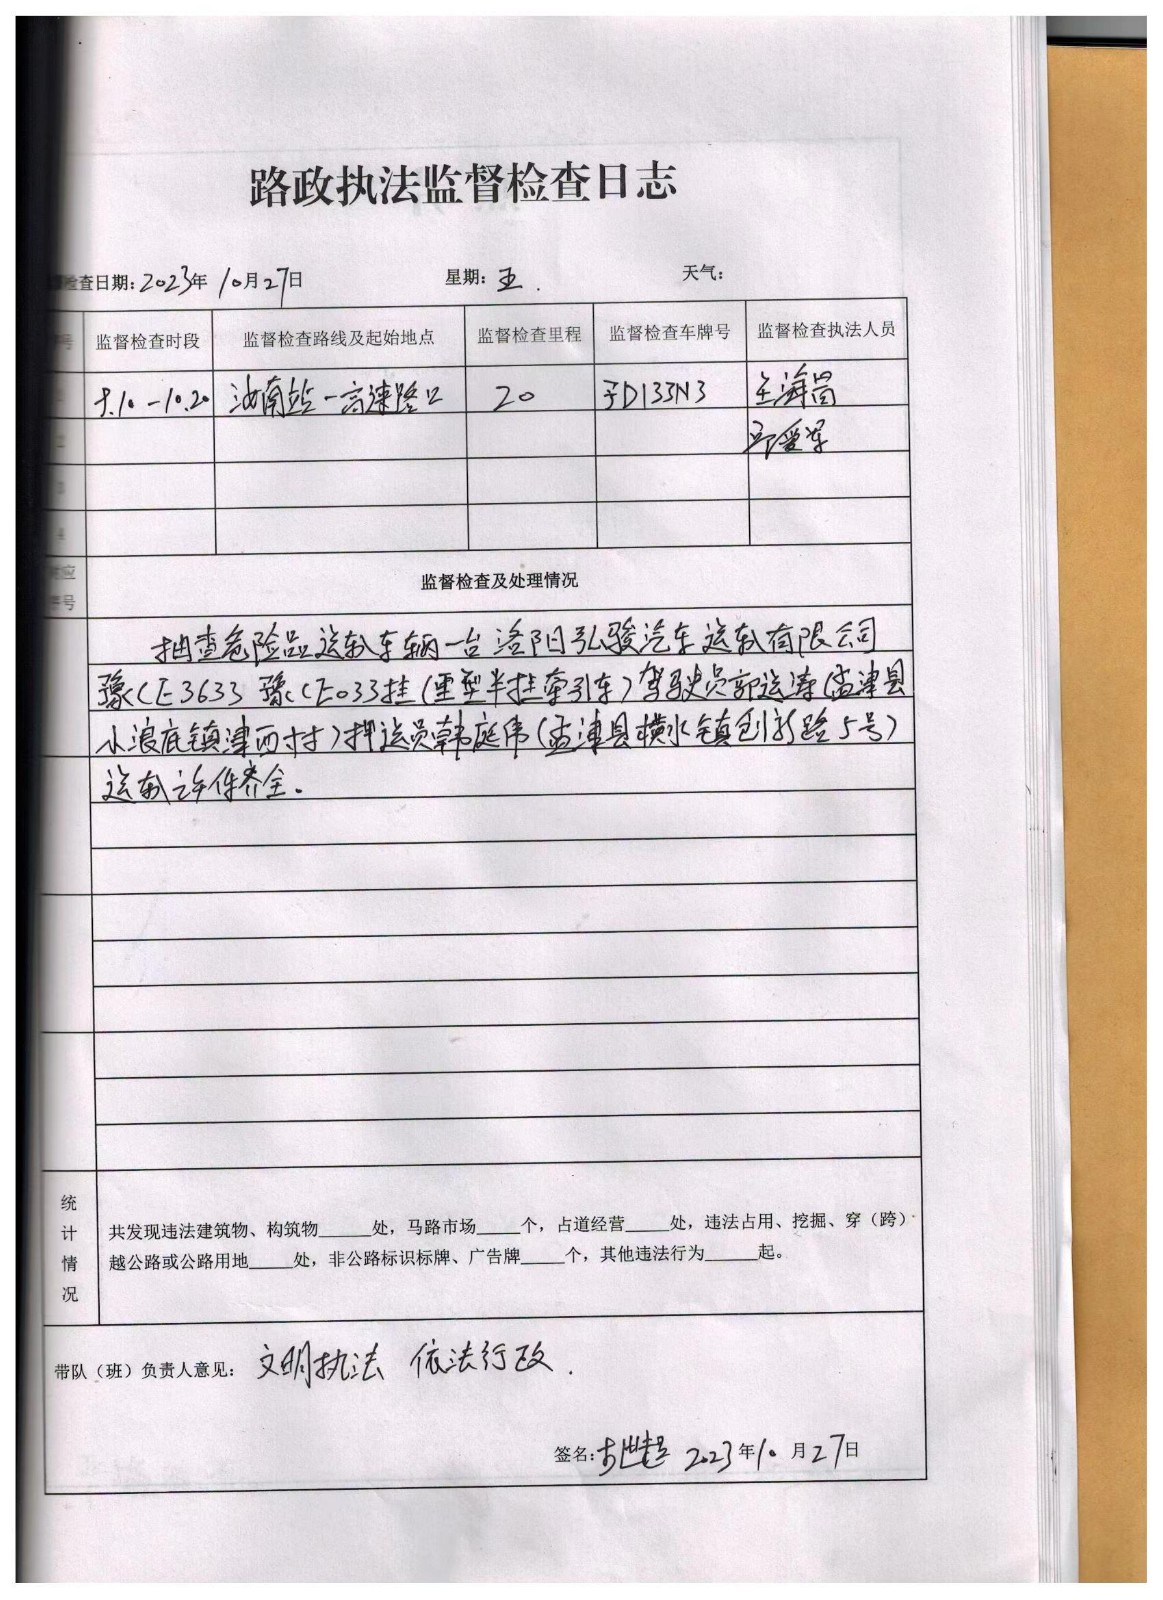 路政执法监督检查日志
检查日期：2023年10月27日 星期：五. 天气：
号 监督检查时段 监督检查路线及起始地点 监督检查里程 监督检查车牌号 监督检查执法人员
9.10-10.20 汝南站-高速路口 20 D135N3 王海岗
二 邱爱军
监督检查及处理情况
应
号
抽查危险品运输车辆一台洛阳弘骏汽车运输有限公司
豫CE3633 豫CE033挂(重型半挂牵引车)驾驶员郭运涛(孟津县
小浪底镇津西村)押运员韩庭伟(孟津县横水镇创新路5号)
运输证件齐全。
统计情况
共发现违法建筑物、构筑物_____处，马路市场____个，占道经营____处，违法占用、挖掘、穿（跨）
越公路或公路用地____处，非公路标识标牌、广告牌____个，其他违法行为_____起。
带队（班）负责人意见：文明执法 依法行政.
签名： 2023年10月27日